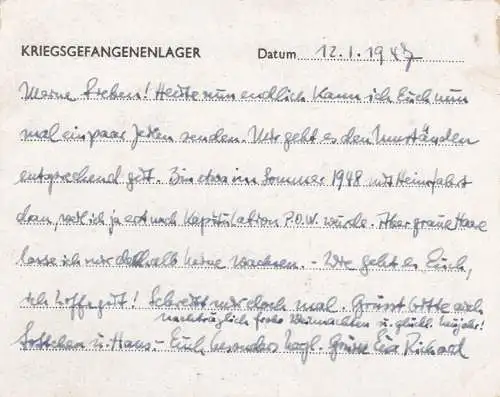 KRIEGSGEFANGENENLAGER Datum 12.1.1947
Meine Lieben! Heute nun endlich kann ich Euch nun
mal ein paar Zeilen senden. Mir geht es den Umständen
entsprechend gut. Bin etwa im Sommer 1948 mit Heimfahrt
dran, weil ich ja erst nach Kapitulation P.O.W. wurde. Aber graue Haare
lasse ich mir deshalb keine wachsen. – Wie geht es Euch,
ich hoffe gut! Schreibt mir doch mal. Grüsst bitte auch
nachträglich frohe Weihnachten u. glückl. Neujahr!
u. Hans. – Euch besonders hzgl. Grüsse Euer Richard